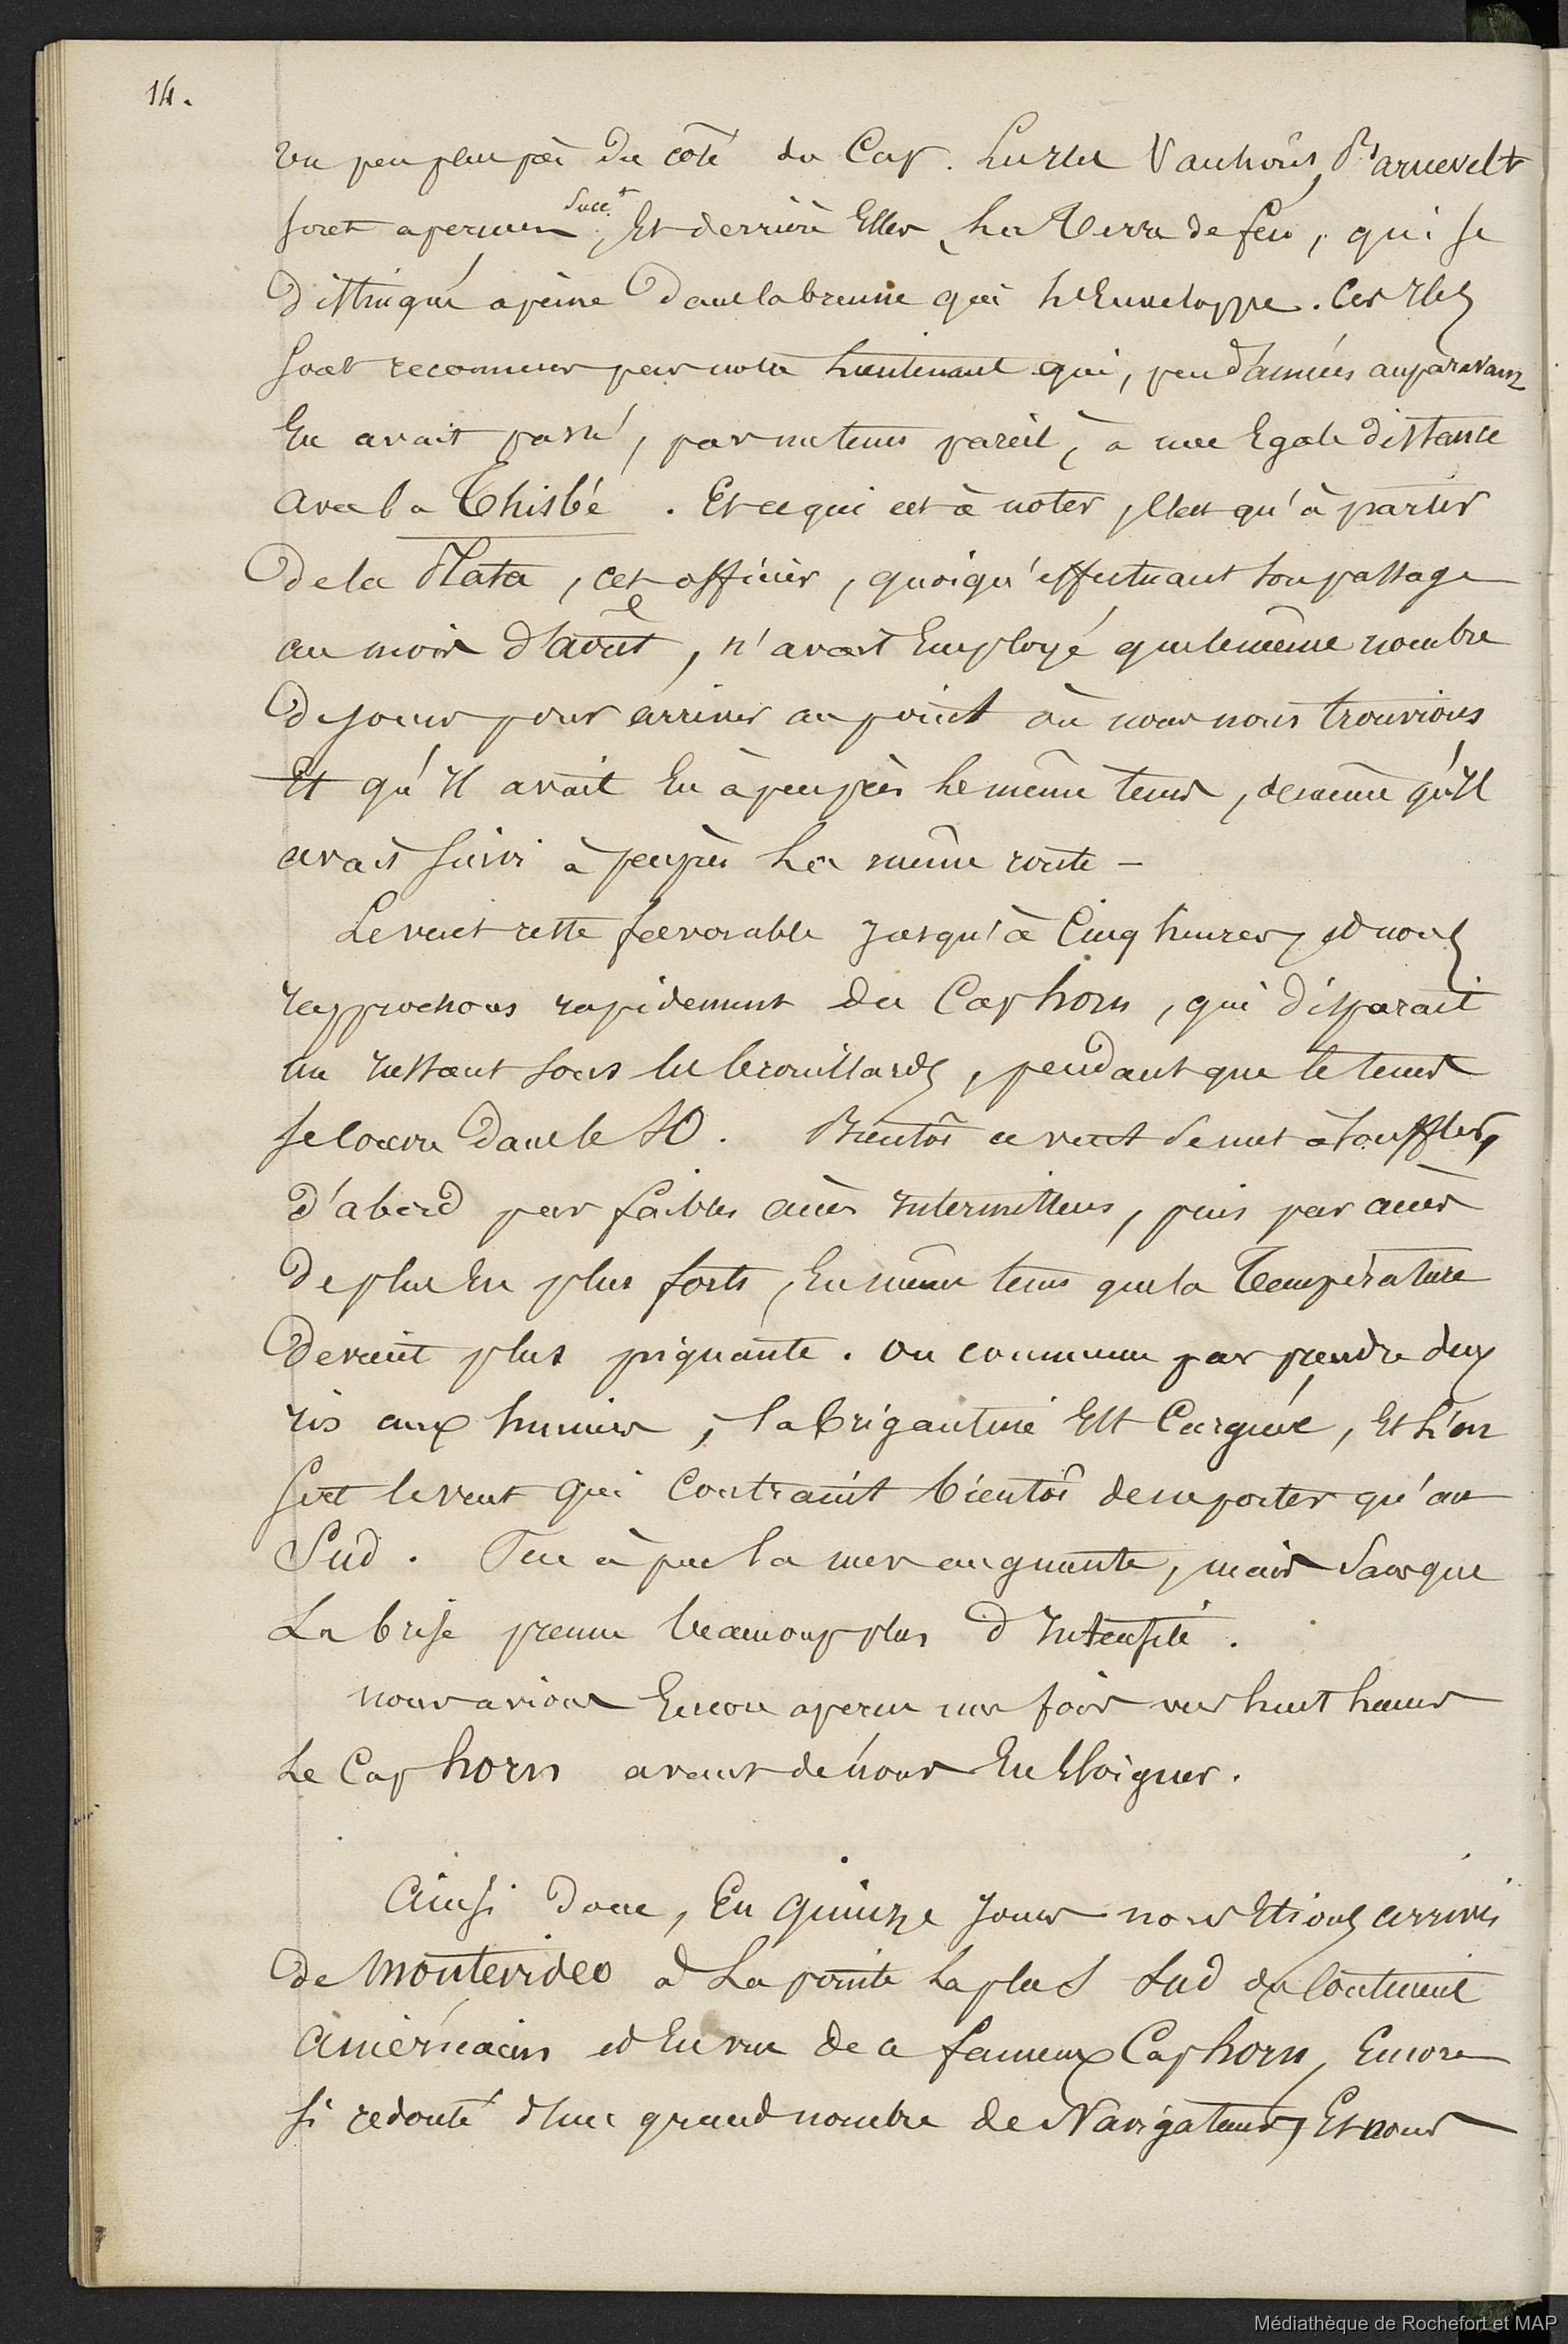 14.
un peu plus près du côté du Cap. Les Iles Vauhorn, Barnevelt
sont aperçues succt. Et derrière Elles, La Terre de feu, qui se
distingue apeine dans la brume qui L'Enveloppe. Ces Iles
sont reconnues par notre Lieutenant qui, peu d'années auparavant
En avait passé, par un tems pareil, à une Egale distance
avec la Thisbé. Et ce qui est à noter, c'est qu'à partir
de la Plata, cet officier, quoiqu'effectuant son passage
au mois d'août, n'avait Employé que le même nombre
de jours pour arriver au point où nous nous trouvions
Et qu'Il avait Eu à peu près Le même tems, de même qu'Il
avait suivi à peu près La même route –
Le vent reste favorable jusqu'à Cinq heures, et nous
rapprochons rapidement du Cap horn, qui disparait
un instant sous les brouillards, pendant que le tems
se couvre dans le SO. Bientôt ce vent se met à souffler,
d'abord par faibles accès Intermittens, puis par accès
de plus En plus forts, En même tems que la Température
devient plus piquante. On commence par prendre deux
ris aux huniers, la brigantine Est Carguée, Et L'on
sert le vent qui contraint bientôt de ne porter qu'au
Sud. Peu à peu la mer augmente, mais sans que
La brise prenne beaucoup plus d'Intensité.
nous avions Encore aperçu une fois vers huit heures
Le Cap horn avant de nous En Eloigner.
Ainsi donc, En quinze jours nous Etions arrivés
de Montevideo à La pointe La plus Sud du Continent
américain et En vue de ce fameux Cap horn, Encore
si redouté d'un grand nombre de Navigateurs, Et nous
Médiathèque de Rochefort et MAP